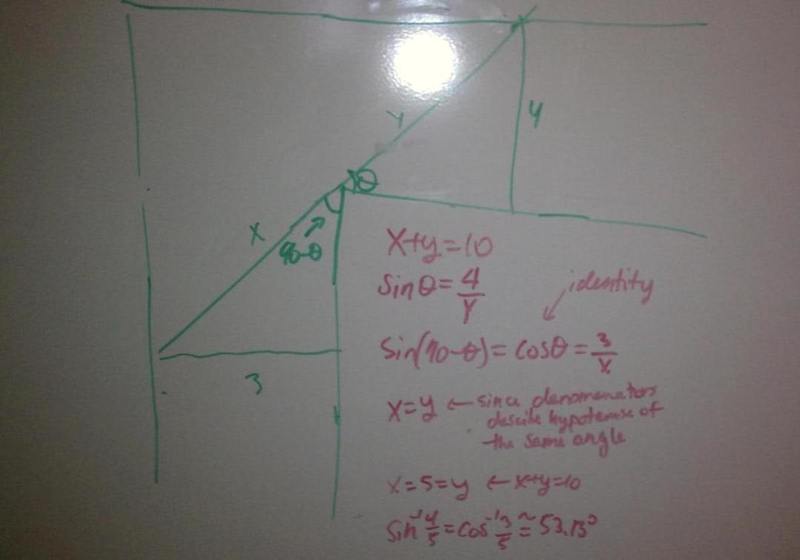 y
4
θ
x
90-θ
3
x+y=10
sinθ=4/y
identity
sin(90-θ)=cosθ=3/x
x=y ← since denomenators
describe hypotenuse of
the same angle
x=5=y ← x+y=10
sin⁻¹4/5=cos⁻¹3/5≅53.13°